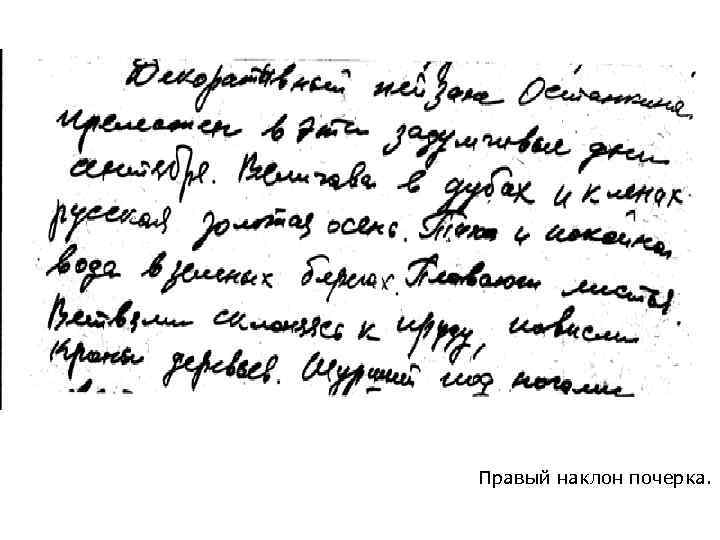 Декоративный пейзаж Останкина
прелестен в эти задумчивые дни
сентября. Величава в дубах и кленах
русская золотая осень. Тиха и покойна
вода в зеленых берегах. Плавают листья.
Ветвями склонясь к пруду, нависли
кроны деревьев. Шуршит под ногами
Правый наклон почерка.